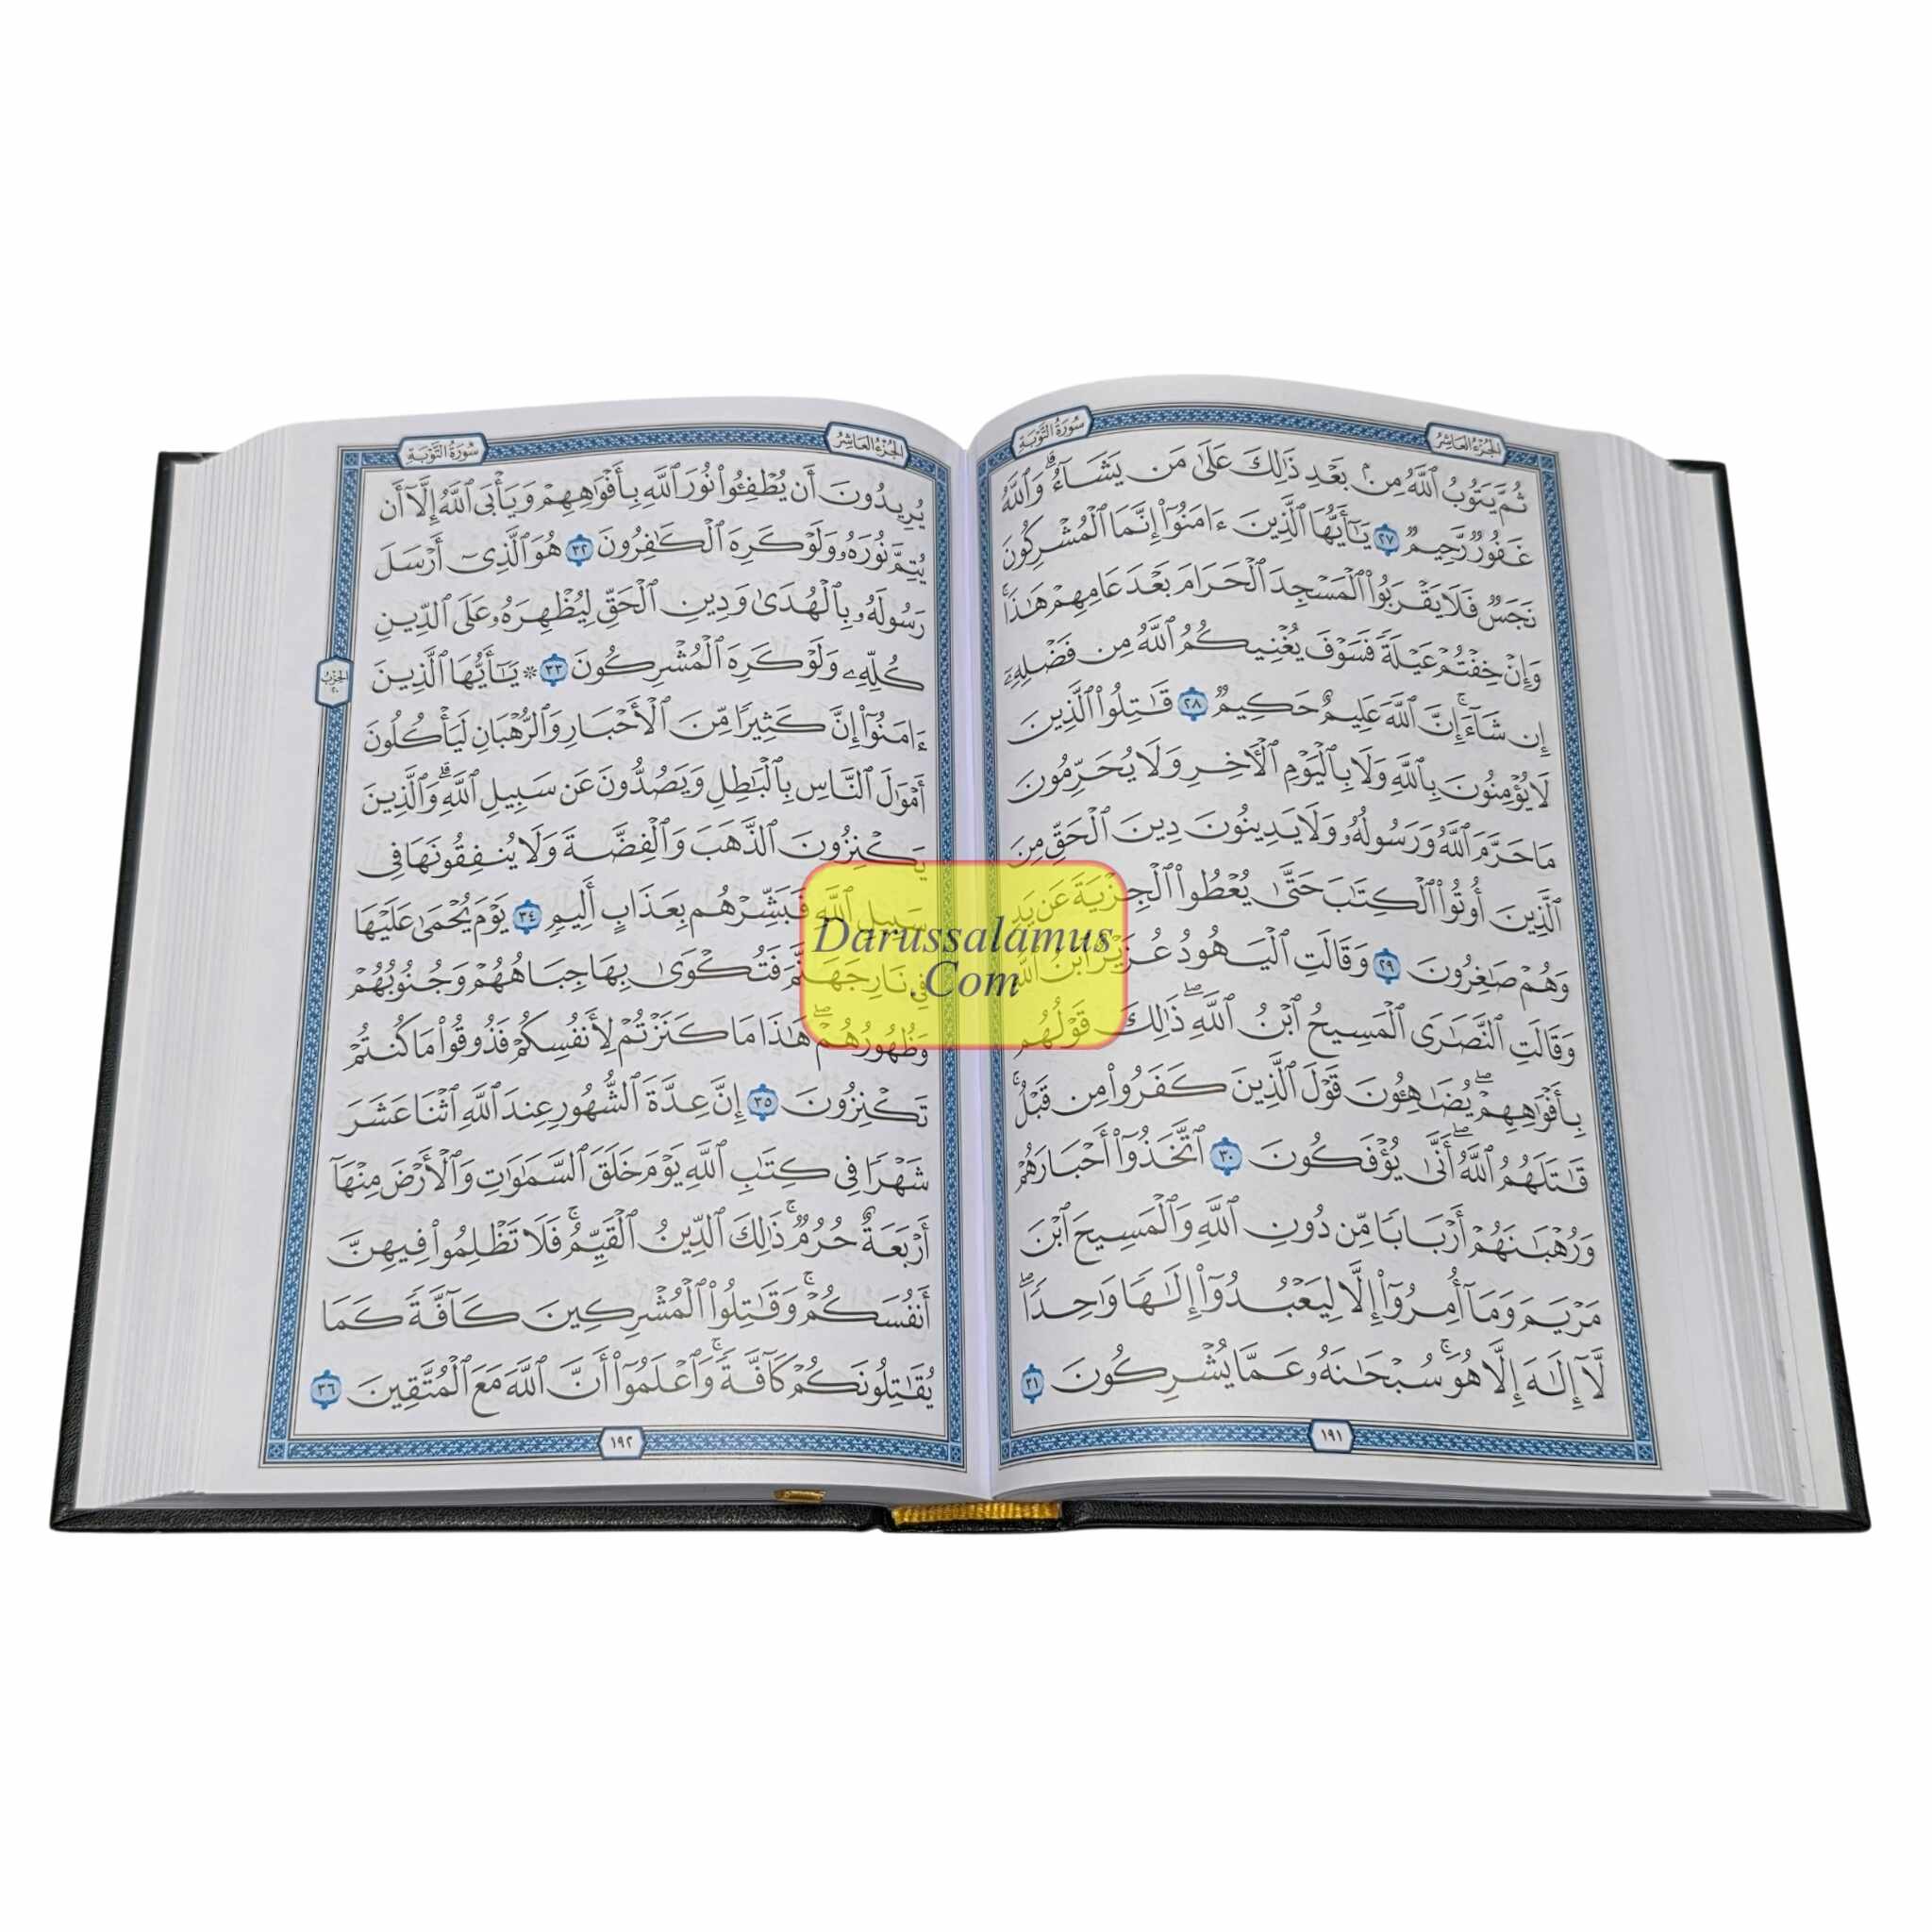 الجزء العاشر
سورة التوبة
ثُمَّ يَتُوبُ ٱللَّهُ مِنۢ بَعْدِ ذَٰلِكَ عَلَىٰ مَن يَشَآءُ ۗ وَٱللَّهُ
غَفُورٌ رَّحِيمٌ ٢٧ يَـٰٓأَيُّهَا ٱلَّذِينَ ءَامَنُوٓا۟ إِنَّمَا ٱلْمُشْرِكُونَ
نَجَسٌ فَلَا يَقْرَبُوا۟ ٱلْمَسْجِدَ ٱلْحَرَامَ بَعْدَ عَامِهِمْ هَـٰذَا ۚ
وَإِنْ خِفْتُمْ عَيْلَةً فَسَوْفَ يُغْنِيكُمُ ٱللَّهُ مِن فَضْلِهِۦٓ
إِن شَآءَ ۚ إِنَّ ٱللَّهَ عَلِيمٌ حَكِيمٌ ٢٨ قَـٰتِلُوا۟ ٱلَّذِينَ
لَا يُؤْمِنُونَ بِٱللَّهِ وَلَا بِٱلْيَوْمِ ٱلْـَٔاخِرِ وَلَا يُحَرِّمُونَ
مَا حَرَّمَ ٱللَّهُ وَرَسُولُهُۥ وَلَا يَدِينُونَ دِينَ ٱلْحَقِّ مِنَ
ٱلَّذِينَ أُوتُوا۟ ٱلْكِتَـٰبَ حَتَّىٰ يُعْطُوا۟ ٱلْجِزْيَةَ عَن يَدٍ
وَهُمْ صَـٰغِرُونَ ٢٩ وَقَالَتِ ٱلْيَهُودُ عُزَيْرٌ ٱبْنُ ٱللَّهِ
وَقَالَتِ ٱلنَّصَـٰرَى ٱلْمَسِيحُ ٱبْنُ ٱللَّهِ ۖ ذَٰلِكَ قَوْلُهُم
بِأَفْوَٰهِهِمْ ۖ يُضَـٰهِـُٔونَ قَوْلَ ٱلَّذِينَ كَفَرُوا۟ مِن قَبْلُ ۚ
قَـٰتَلَهُمُ ٱللَّهُ ۖ أَنَّىٰ يُؤْفَكُونَ ٣٠ ٱتَّخَذُوٓا۟ أَحْبَارَهُمْ
وَرُهْبَـٰنَهُمْ أَرْبَابًا مِّن دُونِ ٱللَّهِ وَٱلْمَسِيحَ ٱبْنَ
مَرْيَمَ وَمَآ أُمِرُوٓا۟ إِلَّا لِيَعْبُدُوٓا۟ إِلَـٰهًا وَٰحِدًا ۖ
لَّآ إِلَـٰهَ إِلَّا هُوَ ۚ سُبْحَـٰنَهُۥ عَمَّا يُشْرِكُونَ ٣١
١٩١
الجزء العاشر
سورة التوبة
يُرِيدُونَ أَن يُطْفِـُٔوا۟ نُورَ ٱللَّهِ بِأَفْوَٰهِهِمْ وَيَأْبَى ٱللَّهُ إِلَّآ أَن
يُتِمَّ نُورَهُۥ وَلَوْ كَرِهَ ٱلْكَـٰفِرُونَ ٣٢ هُوَ ٱلَّذِىٓ أَرْسَلَ
رَسُولَهُۥ بِٱلْهُدَىٰ وَدِينِ ٱلْحَقِّ لِيُظْهِرَهُۥ عَلَى ٱلدِّينِ
كُلِّهِۦ وَلَوْ كَرِهَ ٱلْمُشْرِكُونَ ٣٣ ۞ يَـٰٓأَيُّهَا ٱلَّذِينَ
ءَامَنُوٓا۟ إِنَّ كَثِيرًا مِّنَ ٱلْأَحْبَارِ وَٱلرُّهْبَانِ لَيَأْكُلُونَ
أَمْوَٰلَ ٱلنَّاسِ بِٱلْبَـٰطِلِ وَيَصُدُّونَ عَن سَبِيلِ ٱللَّهِ ۗ وَٱلَّذِينَ
يَكْنِزُونَ ٱلذَّهَبَ وَٱلْفِضَّةَ وَلَا يُنفِقُونَهَا فِى
سَبِيلِ ٱللَّهِ فَبَشِّرْهُم بِعَذَابٍ أَلِيمٍ ٣٤ يَوْمَ يُحْمَىٰ عَلَيْهَا
فِى نَارِ جَهَنَّمَ فَتُكْوَىٰ بِهَا جِبَاهُهُمْ وَجُنُوبُهُمْ
وَظُهُورُهُمْ ۖ هَـٰذَا مَا كَنَزْتُمْ لِأَنفُسِكُمْ فَذُوقُوا۟ مَا كُنتُمْ
تَكْنِزُونَ ٣٥ إِنَّ عِدَّةَ ٱلشُّهُورِ عِندَ ٱللَّهِ ٱثْنَا عَشَرَ
شَهْرًا فِى كِتَـٰبِ ٱللَّهِ يَوْمَ خَلَقَ ٱلسَّمَـٰوَٰتِ وَٱلْأَرْضَ مِنْهَآ
أَرْبَعَةٌ حُرُمٌ ۚ ذَٰلِكَ ٱلدِّينُ ٱلْقَيِّمُ ۚ فَلَا تَظْلِمُوا۟ فِيهِنَّ
أَنفُسَكُمْ ۚ وَقَـٰتِلُوا۟ ٱلْمُشْرِكِينَ كَآفَّةً كَمَا
يُقَـٰتِلُونَكُمْ كَآفَّةً ۚ وَٱعْلَمُوٓا۟ أَنَّ ٱللَّهَ مَعَ ٱلْمُتَّقِينَ ٣٦
١٩٢
الحزب
٢٠
Darussalamus
.Com